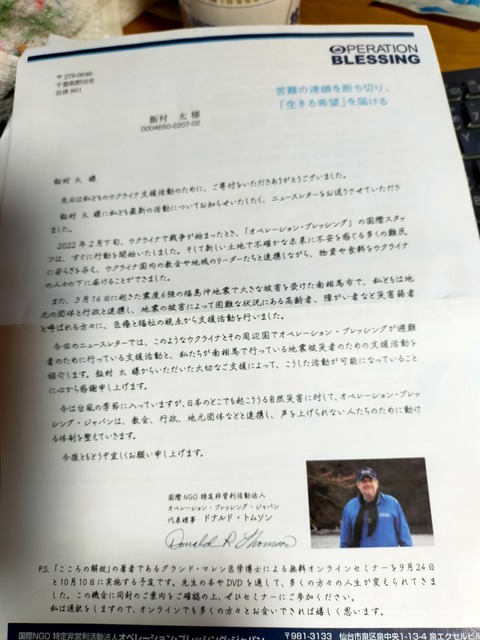 OPERATION
BLESSING
苦難の連鎖を断ち切り、
「生きる希望」を届ける
〒278-0046
千葉県野田市
飯村 太 様
0004650-2207-02
飯村 太 様
先日は私どものウクライナ支援活動のために、ご寄付をいただきありがとうございました。
飯村 太 様に私ども最新の活動についてお知らせいたしたく、ニュースレターをお送りさせていただき
ました。
2022年2月下旬、ウクライナで戦争が始まったとき、「オペレーション・ブレッシング」の国際スタッ
フは、すぐに行動を開始いたしました。そして新しい土地で不確かな未来に不安を感じる多くの難民
に安らぎを与え、ウクライナ国内の教会や地域のリーダーたちと連携しながら、物資や食料をウクライナ
の人々の下に届けることができました。
また、3月16日に起きた震度6強の福島沖地震で大きな被害を受けた南相馬市で、私どもは地
元の団体と行政と連携し、地震の被害によって困難な状況にある高齢者、障がい者など災害弱者
と呼ばれる方々に、医療と福祉の視点から支援活動を行いました。
今回のニュースレターでは、このようなウクライナとその周辺国でオペレーション・ブレッシングが避難
者のために行っている支援活動と、私たちが南相馬で行っている地震被災者のための支援活動を
紹介します。飯村 太 様からいただいた大切なご支援によって、こうした活動が可能になっていること
に心から感謝申し上げます。
今は台風の季節に入っていますが、日本のどこでも起こりうる自然災害に対して、オペレーション・ブレッ
シング・ジャパンは、教会、行政、地元団体などと連携し、声を上げられない人たちのために動け
る体制を整えていきます。
今後ともどうぞ宜しくお願い申し上げます。
国際NGO 特定非営利活動法人
オペレーション・ブレッシング・ジャパン
代表理事 ドナルド・トムソン
Donald R. Thomson
P.S. 「こころの解放」の著者であるグランド・マレン医学博士による無料オンラインセミナーを9月24日
と10月10日に実施する予定です。先生の本やDVDを通して、多くの方々の人生が変えられてきま
した。この機会に同封のご案内をご確認の上、ぜひセミナーにご参加ください。
私は通訳をしますので、オンラインでも多くの方々とお会いできれば嬉しく思います。
国際NGO 特定非営利活動法人オペレーション・ブレッシング・ジャパン
〒981-3133 仙台市泉区泉中央1-13-4 泉エクセルビル